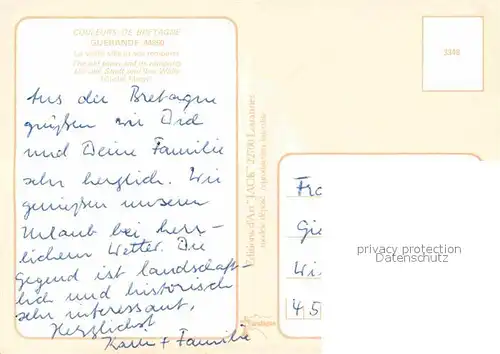 COULEURS DE BRETAGNE
GUERANDE 44350
La vieille ville et ses remparts
The old town and its ramparts
Die alte Stadt und ihre Wälle
Aus der Bretagne
grüßen wir Dich
und Deine Familie
sehr herzlich. Wir
genießen unseren
Urlaub bei herr-
lichem Wetter. Die
Gegend ist landschaft-
lich und historisch
sehr interessant.
Herzlichst
+ Familie
Editions d'Art "JACK" 22700 Lannion
modèle déposé, reproduction interdite
3348
Fra
Gie
Wi
45
privacy protection
Datenschutz